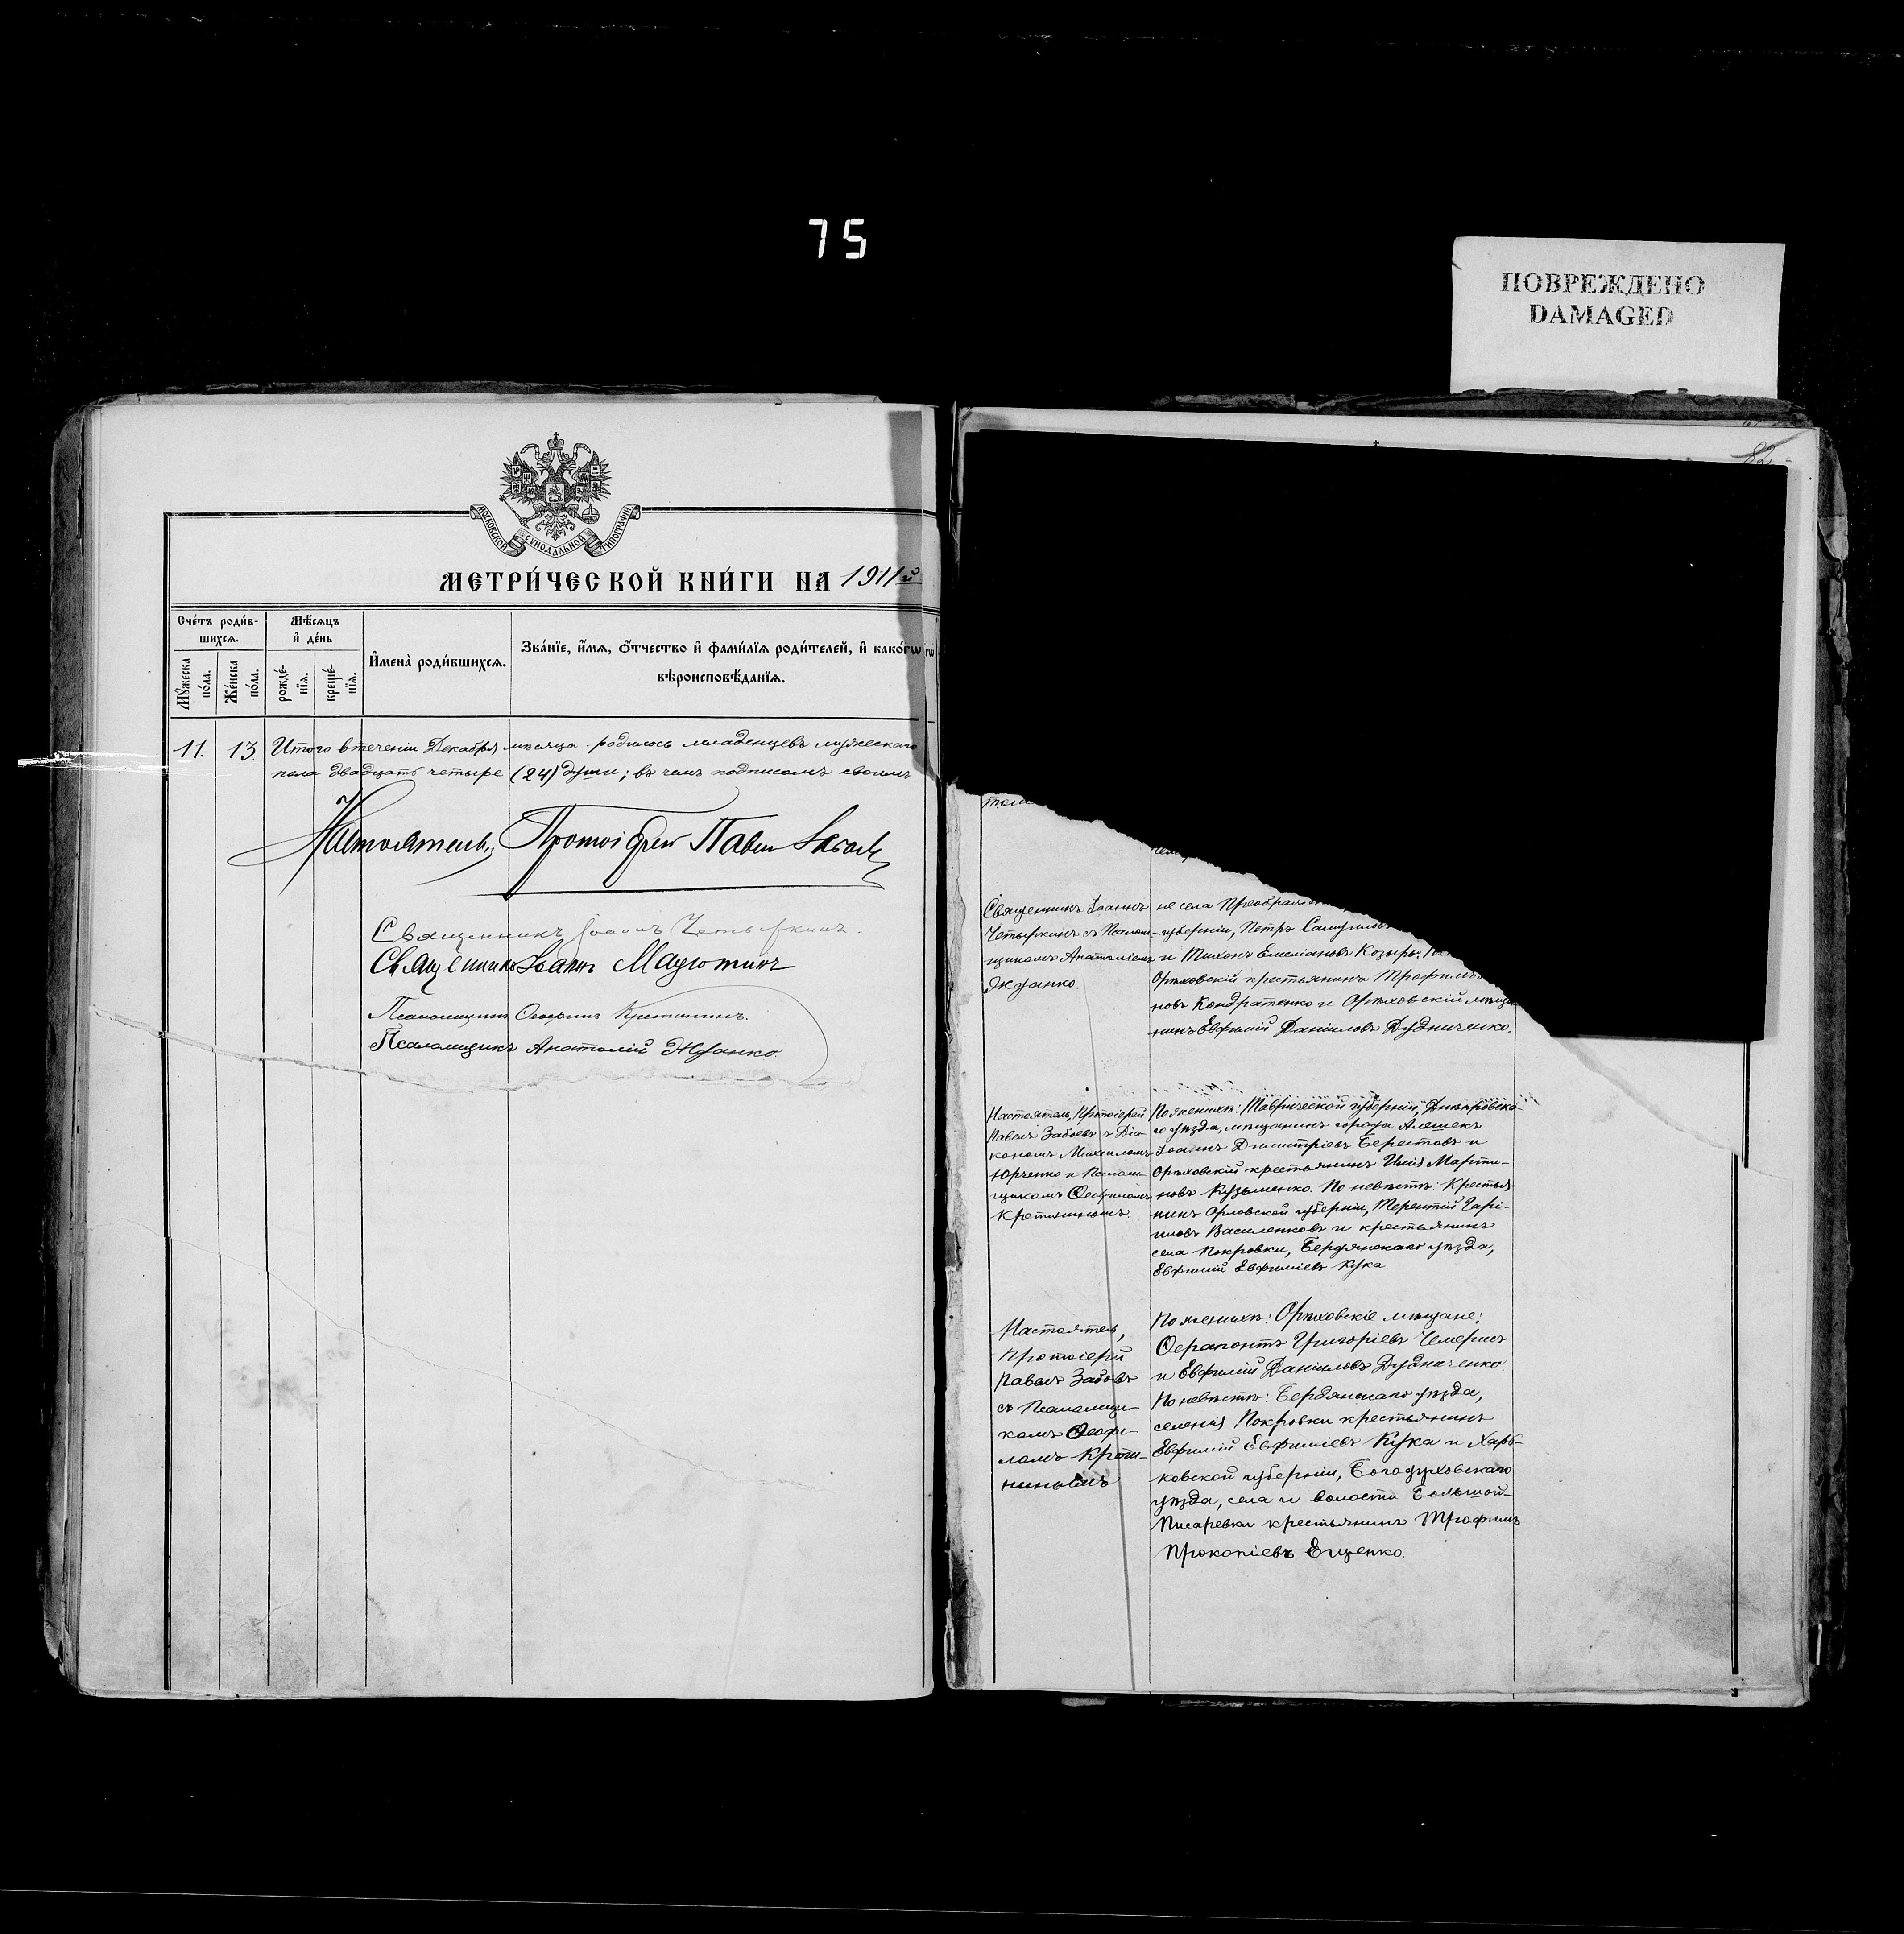 75
ПОВРЕЖДЕНО
DAMAGED
82
МОСКОВСКОЙ СѴНОДАЛЬНОЙ ТИПОГРАФІИ
МЕТРИ́ЧЕСКОЙ КНИ́ГИ НА 1911й
Сче́тъ роди́в-
шихся.
Мꙋ́жеска
по́ла.
Же́нска
по́ла.
Мѣ́сяцъ
и҆ де́нь
рожде́-
нїя.
креще́-
нїя.
И҆мена̀ роди́вшихся.
Зва́нїе, и҆́мя, ѻ҆́тчество и҆ фами́лїя роди́телей, и҆ како́гѡ
вѣроисповѣ́данїя.
11. 13. Итого втеченіи Декабря мѣсяца родилось младенцевъ мужескаго
пола двадцать четыре (24) души; въ чемъ подписомъ своимъ
Настоятель, Протоіерей Павелъ
Священникъ Іоаннъ Четыркинъ.
Священникъ Іоаннъ
Псаломщикъ Ѳеофилъ
Псаломщикъ Анатолій Жданко.
Священникъ Іоаннъ
Четыркинъ съ Псалом-
щикомъ Анатоліемъ
Жданко.
не села
губерніи, Петръ
и Тихонъ Емеліановъ Козырь.
Орѣховскій крестьянинъ
новъ Кондратенко и Орѣховскій мѣща
нинъ Евфимій Даніиловъ Дудниченко.
Настоятель, Протоіерей
Павелъ Забоевъ съ Діа-
кономъ Михаиломъ
Юрченко и Псалом-
щикомъ Ѳеофиломъ
Кретининымъ.
По женихѣ: Таврической губерніи, Днѣпровска-
го уѣзда, мѣщанинъ города Алешекъ
Іоаннъ Димитріевъ Берестовъ и
Орѣховскій крестьянинъ Илія Марти-
новъ Кузьменко. По невѣстѣ: Крестья-
нинъ Орловской губерніи, Терентій
Василенковъ и крестьянинъ
села Покровки, Бердянскаго уѣзда,
Евфимій Евфиміевъ Кука.
Настоятель,
Протоіерей
Павелъ Забоевъ
съ Псаломщи-
комъ Ѳеофи-
ломъ Крети-
нинымъ
По женихѣ: Орѣховскіе мѣщане:
Ѳерапонтъ Григоріевъ Чемерисъ
и Евфимій Даніиловъ Дудниченко.
По невѣстѣ: Бердянскаго уѣзда,
селенія Покровки крестьянинъ
Евфимій Евфиміевъ Кука и Харь-
ковской губерніи, Богодуховскаго
уѣзда, села и волости Большой-
Писаревки крестьянинъ Трофимъ
Прокопіевъ Ещенко.